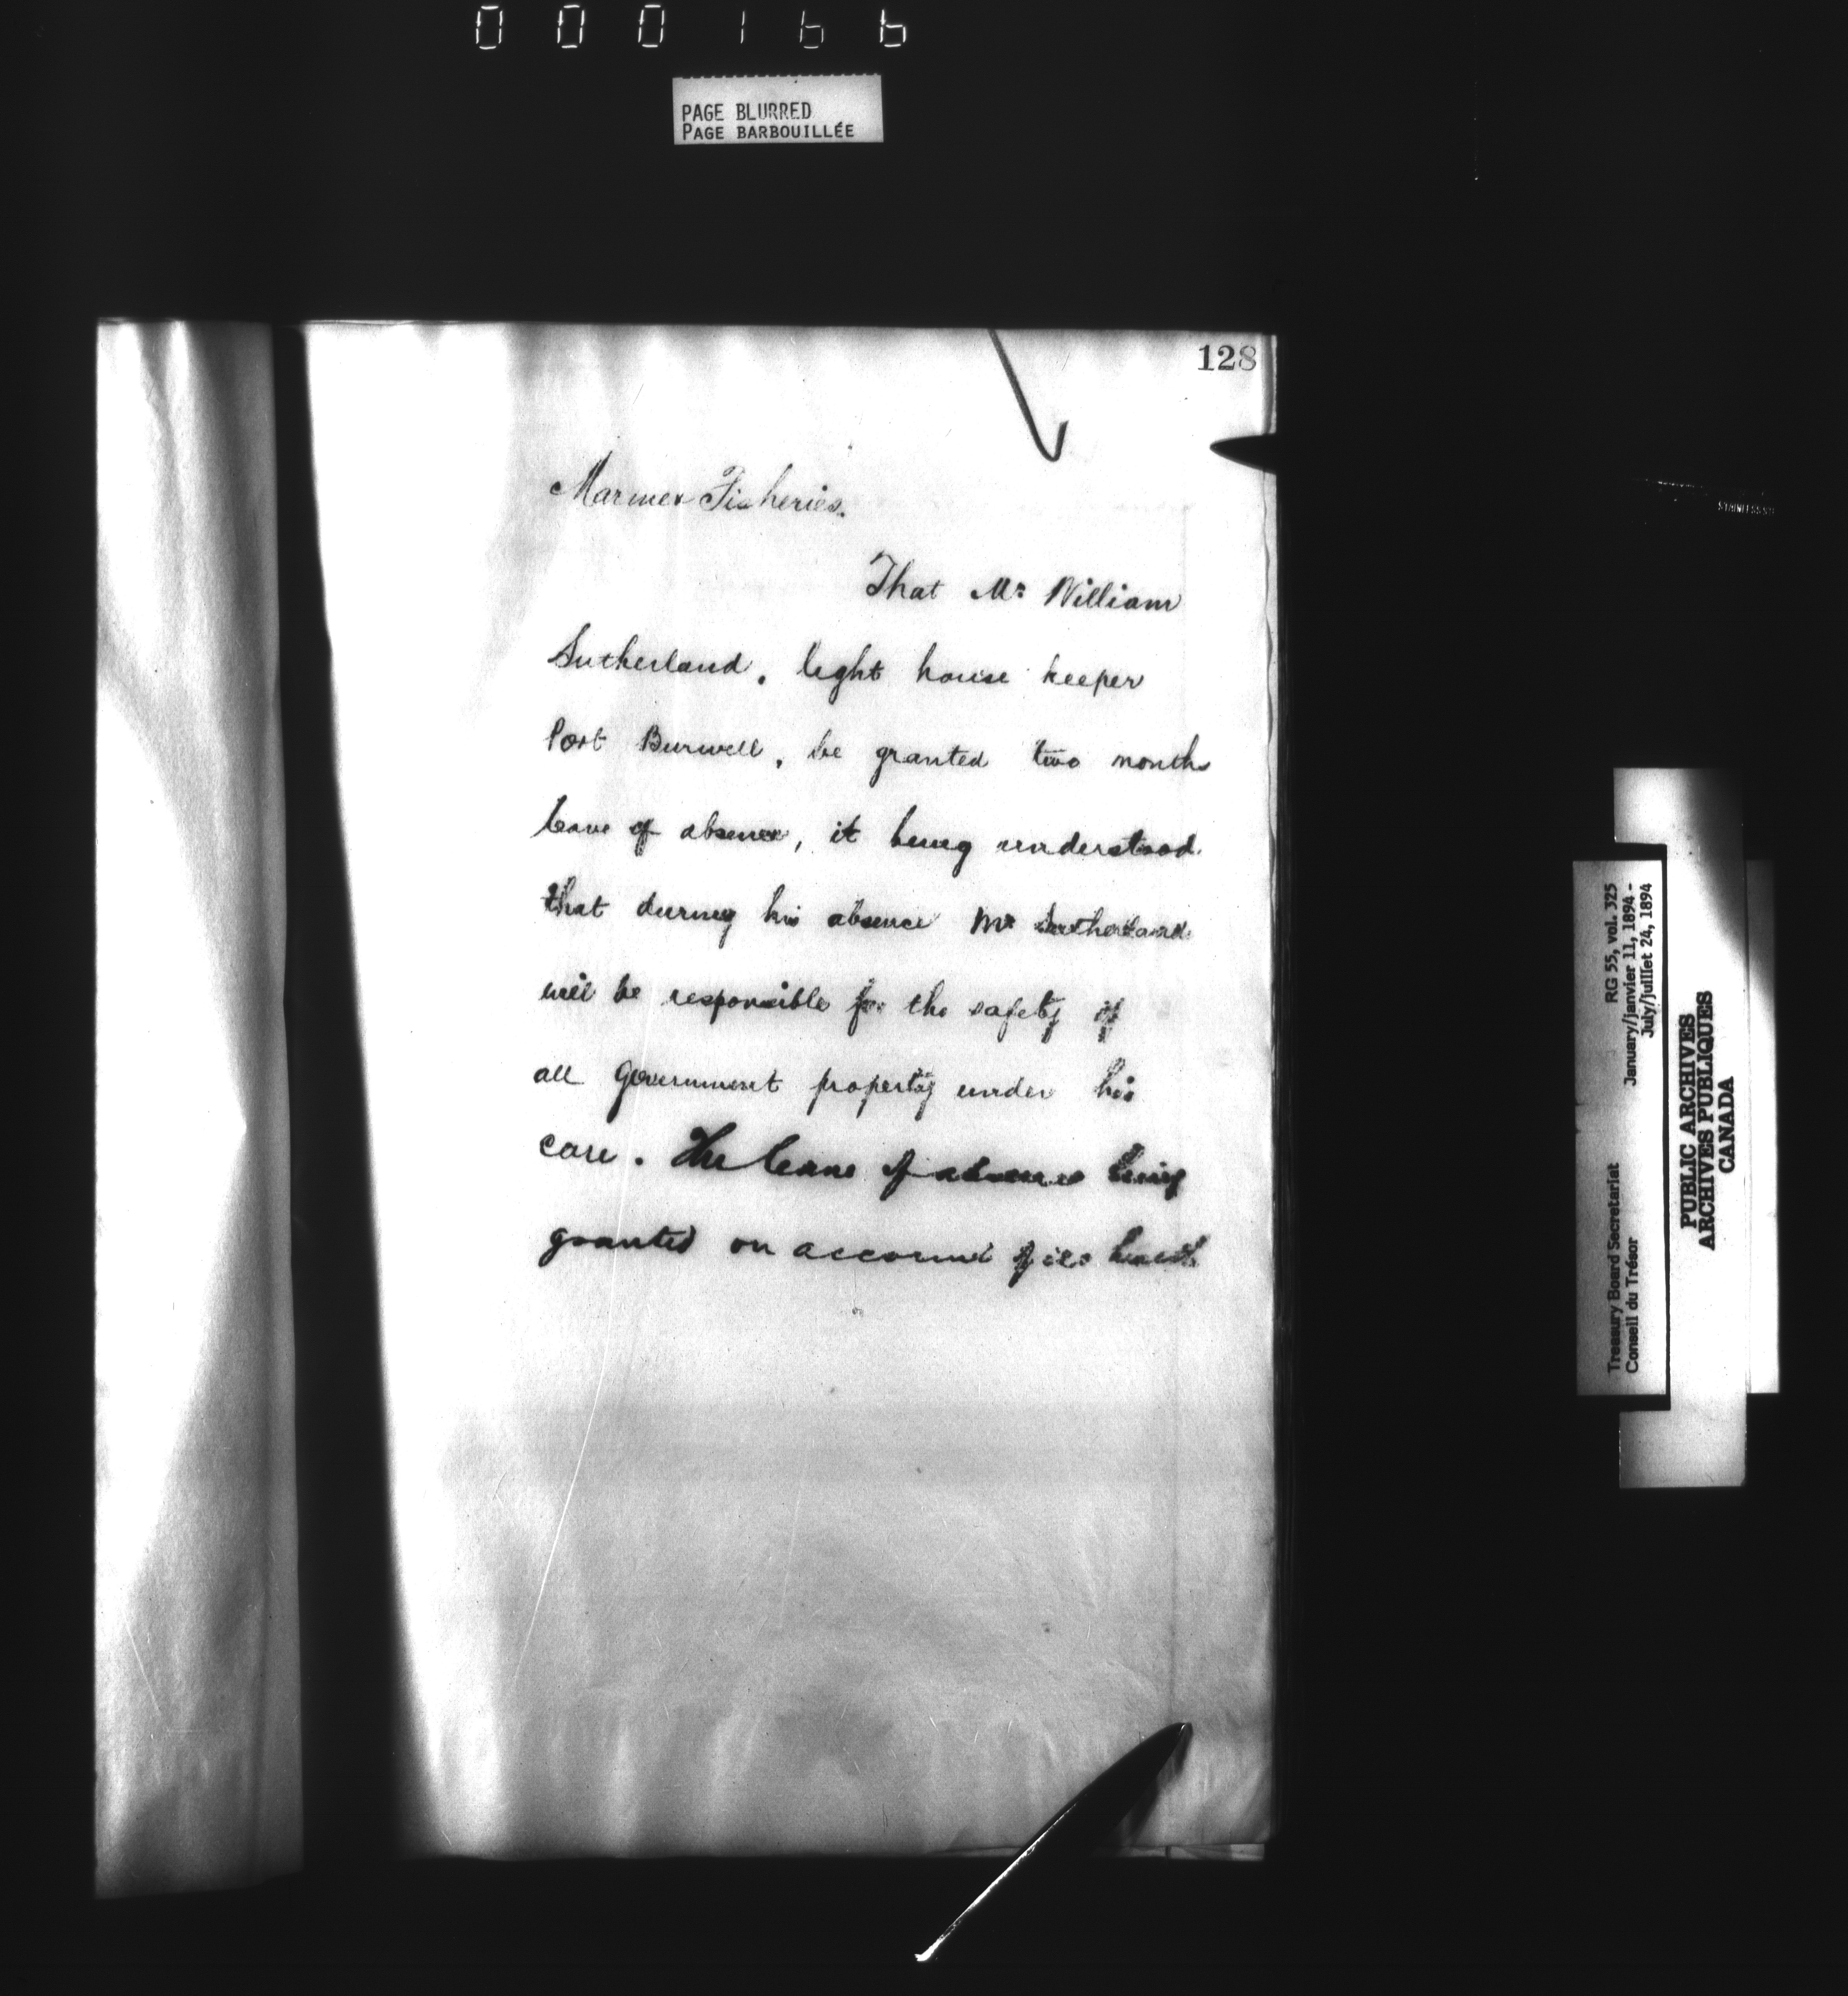 000166
PAGE BLURRED
PAGE BARBOUILLÉE
128
Marine & Fisheries.
That Mr William
Sutherland, light house keeper
Port Burwell, be granted two months
leave of absence, it being understood
that during his absence Mr Sutherland
will be responsible for the safety of
all Government property under his
care. The leave of absence being
granted on account of ill health
STAINLESS
Treasury Board Secretariat
Conseil du Trésor
RG 55, vol. 325
January/janvier 11, 1894 -
July/juillet 24, 1894
PUBLIC ARCHIVES
ARCHIVES PUBLIQUES
CANADA